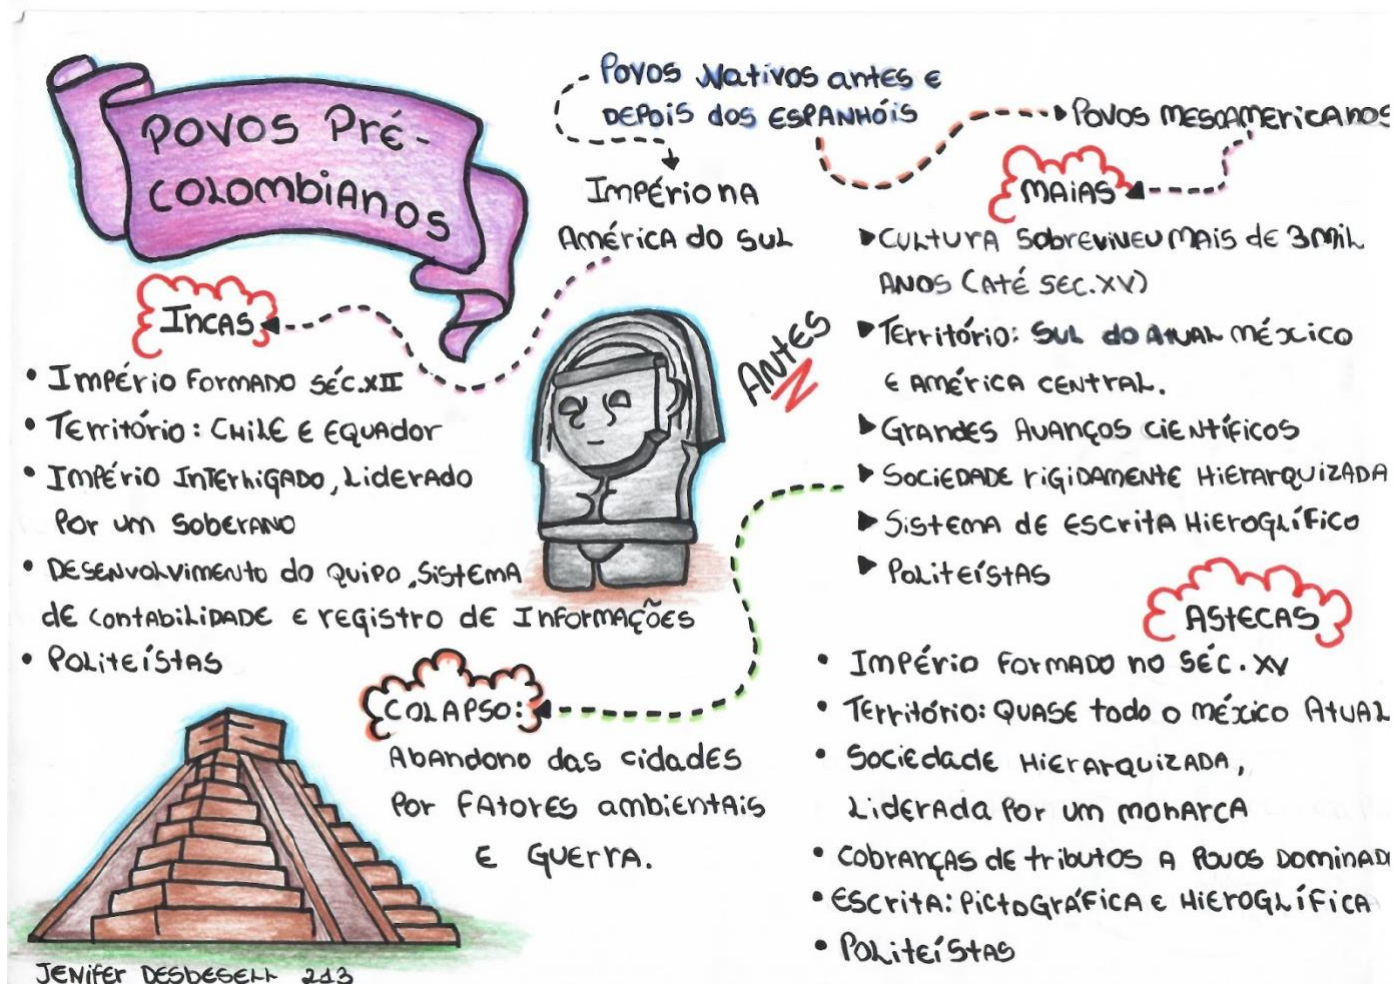 POVOS Pré-
COLOMBIANOS
POVOS NATIVOS ANTES E
DEPOIS DOS ESPANHÓIS
IMPÉRIO NA
AMÉRICA DO SUL
INCAS
• IMPÉRIO FORMADO SÉC.XII
• TERRITÓRIO: CHILE E EQUADOR
• IMPÉRIO INTERLIGADO, LIDERADO
POR UM SOBERANO
• DESENVOLVIMENTO DO QUIPO, SISTEMA
DE CONTABILIDADE E REGISTRO DE INFORMAÇÕES
• POLITEÍSTAS
ANTES
POVOS MESOAMERICANOS
MAIAS
▶CULTURA SOBREVIVEU MAIS DE 3 MIL
ANOS (ATÉ SEC.XV)
▶TERRITÓRIO: SUL DO ATUAL MÉXICO
E AMÉRICA CENTRAL.
▶GRANDES AVANÇOS CIENTÍFICOS
▶SOCIEDADE RIGIDAMENTE HIERARQUIZADA
▶SISTEMA DE ESCRITA HIEROGLÍFICO
▶POLITEÍSTAS
COLAPSO:
ABANDONO DAS CIDADES
POR FATORES AMBIENTAIS
E GUERRA.
ASTECAS
• IMPÉRIO FORMADO NO SÉC. XV
• TERRITÓRIO: QUASE TODO O MÉXICO ATUAL
• SOCIEDADE HIERARQUIZADA,
LIDERADA POR UM MONARCA
• COBRANÇAS DE TRIBUTOS A POVOS DOMINAD
• ESCRITA: PICTOGRÁFICA E HIEROGLÍFICA
• POLITEÍSTAS
JENIFER DESBESELL 213